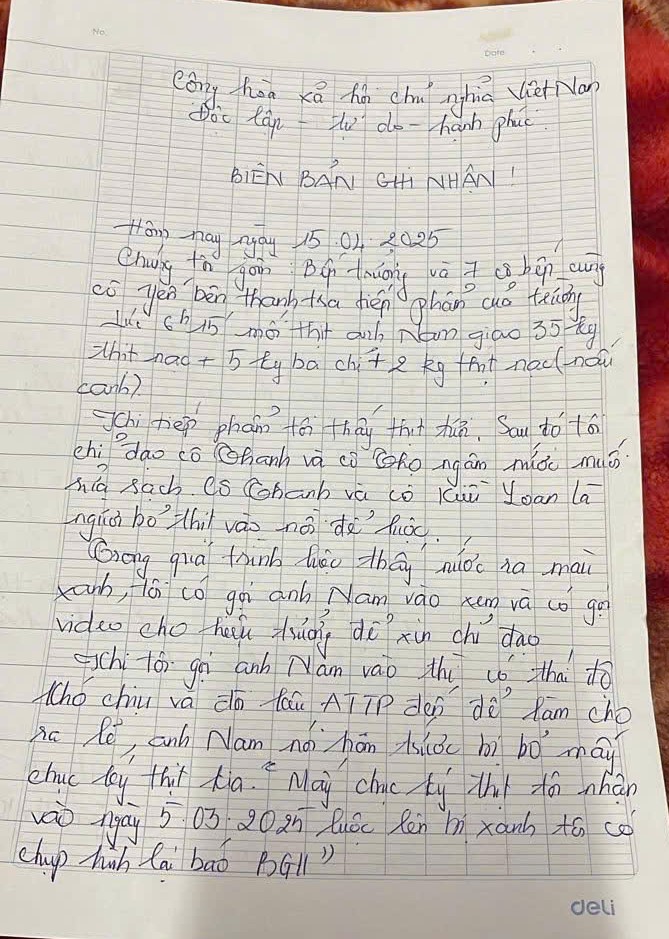 No.
Date
Cộng hòa xã hội chủ nghĩa Việt Nam
Độc lập - tự do - hạnh phúc.
BIÊN BẢN GHI NHẬN!
Hôm nay ngày 15.04.2025
Chúng tôi gồm: Bếp trưởng và 7 cô bếp cùng
cô Yến bên thanh tra tiếp phẩm của trường
Lúc 6h15' mối thịt anh Nam giao 35 kg
thịt nạc + 5 ký ba chỉ + 2 kg thịt nạc (nấu
canh).
Khi tiếp phẩm tôi thấy thịt tươi. Sau đó tôi
chỉ đạo cô Thanh và cô Thơ ngâm nước muối
rửa sạch. Cô Thanh và cô Kiều Loan là
người bỏ thịt vào nồi để luộc.
Trong quá trình luộc thấy nước ra màu
xanh, tôi có gọi anh Nam vào xem và có gọi
video cho hiệu trưởng để xin chỉ đạo
Khi tôi gọi anh Nam vào thì có thái độ
khó chịu và đòi kêu ATTP đến để làm cho
ra lẽ, anh Nam nói hôm trước bị bỏ mấy
chục ký thịt kia. "Mấy chục ký thịt tôi nhận
vào ngày 5.03.2025 luộc lên bị xanh tôi có
chụp hình lại báo BGH"
deli